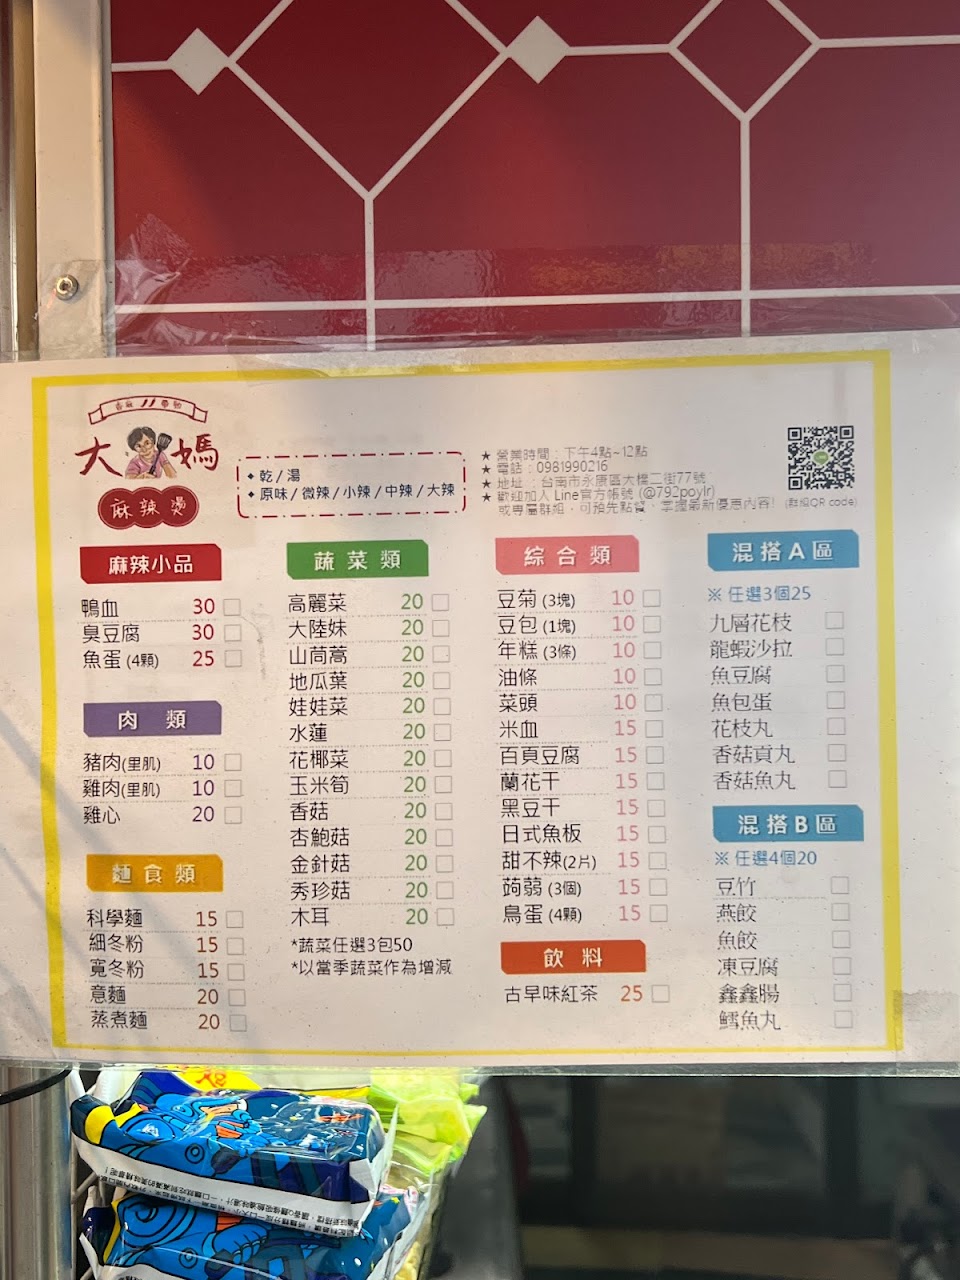 香麻 帶勁
大媽
麻辣燙
◆ 乾/湯
◆ 原味/微辣/小辣/中辣/大辣
★ 營業時間：下午4點~12點
★ 電話：0981990216
★ 地址：台南市永康區大橋二街77號
★ 歡迎加入 Line官方帳號 (@792poylr)
或專屬群組，可預先點餐、掌握最新優惠內容! (群組QR code)
麻辣小品
鴨血 30
臭豆腐 30
魚蛋 (4顆) 25
肉類
豬肉(里肌) 10
雞肉(里肌) 10
雞心 20
麵食類
科學麵 15
細冬粉 15
寬冬粉 15
意麵 20
蒸煮麵 20
蔬菜類
高麗菜 20
大陸妹 20
山茼蒿 20
地瓜葉 20
娃娃菜 20
水蓮 20
花椰菜 20
玉米筍 20
香菇 20
杏鮑菇 20
金針菇 20
秀珍菇 20
木耳 20
*蔬菜任選3包50
*以當季蔬菜作為增減
綜合類
豆菊 (3塊) 10
豆包 (1塊) 10
年糕 (3條) 10
油條 10
菜頭 10
米血 15
百頁豆腐 15
蘭花干 15
黑豆干 15
日式魚板 15
甜不辣(2片) 15
蒟蒻 (3個) 15
鳥蛋 (4顆) 15
飲料
古早味紅茶 25
混搭A區
※ 任選3個25
九層花枝
龍蝦沙拉
魚豆腐
魚包蛋
花枝丸
香菇貢丸
香菇魚丸
混搭B區
※ 任選4個20
豆竹
燕餃
魚餃
凍豆腐
鑫鑫腸
鱈魚丸